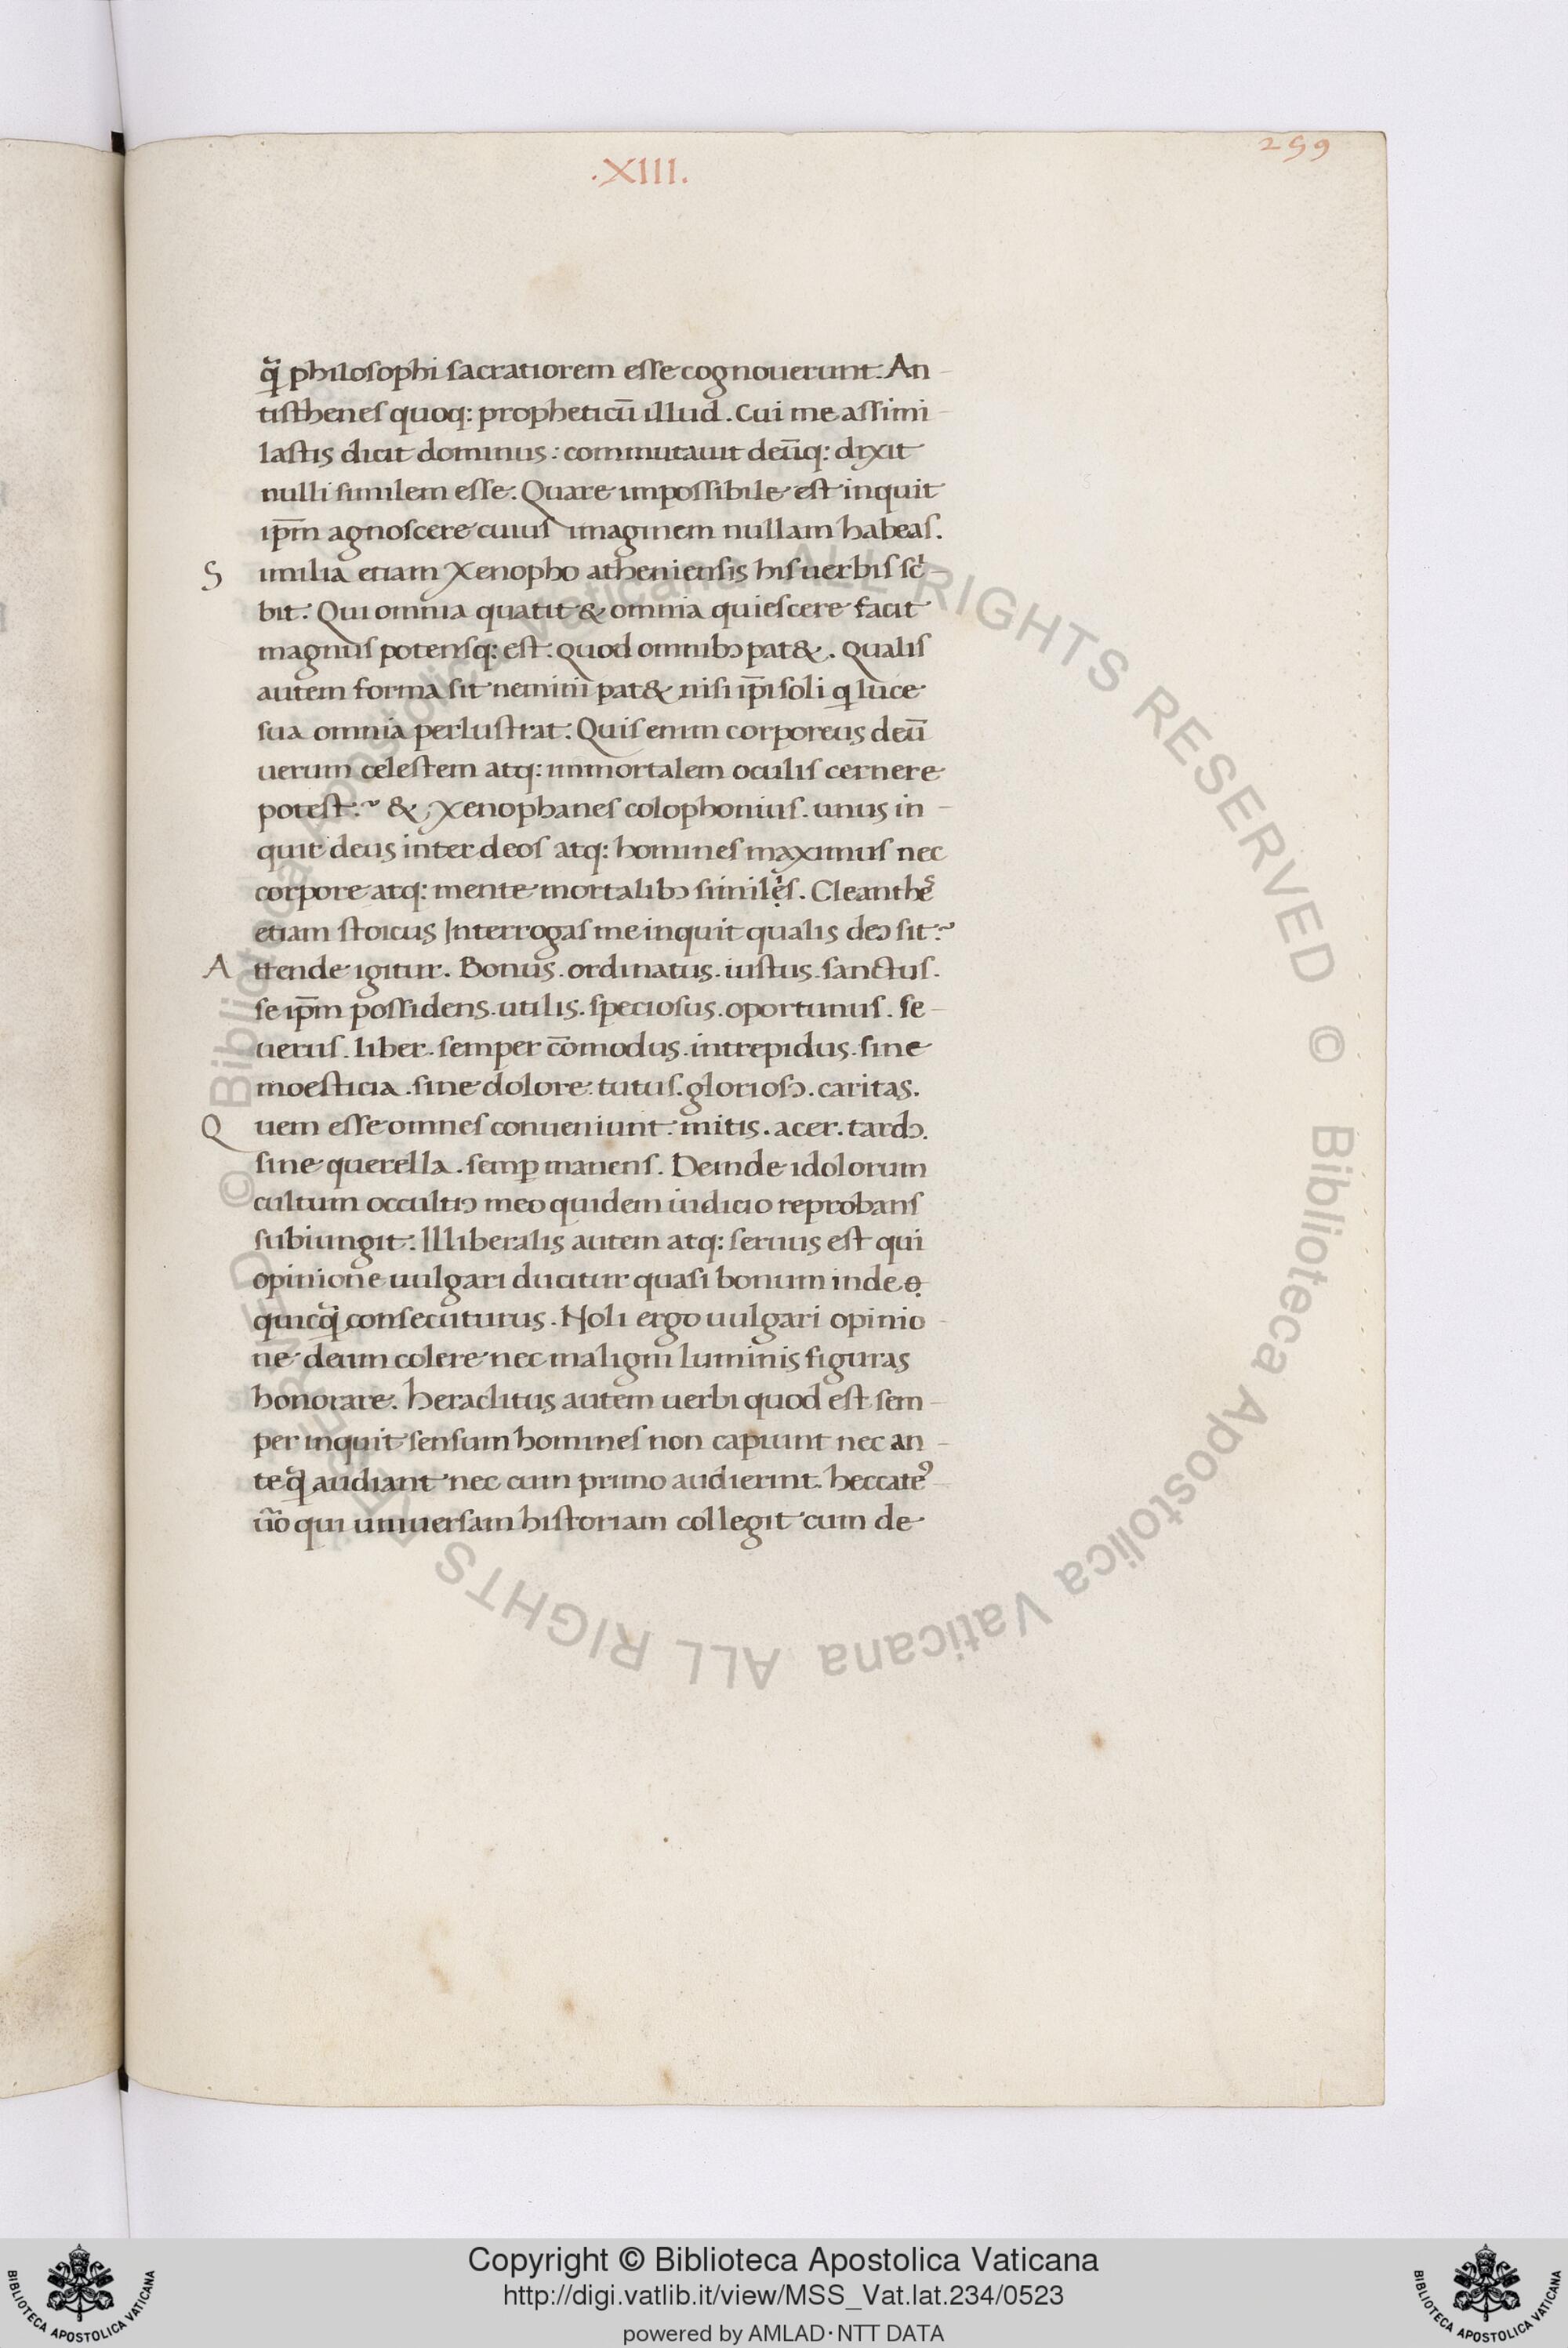 .XIII.
259
qͣ philosophi sacratiorem esse cognouerunt. An-
tisthenes quoq: propheticū illud. Cui me assimi-
lastis dicit dominus: commutauit deūq: dixit
nulli similem esse. Quare impossibile est inquit
ip̄m agnoscere cuius imaginem nullam habeas.
Similia etiam Xenopho atheniensis his uerbis sc̓-
bit. Qui omnia quatit & omnia quiescere facit
magnus potensq: est. quod omnibꝰ pat&. Qualis
autem forma sit nemini pat& nisi ip̄i soli q luce
sua omnia perlustrat. Quis enim corporeus deū
uerum celestem atq: immortalem oculis cernere
potest? & Xenophanes colophonius. unus in-
quit deus inter deos atq: homines maximus nec
corpore atq: mente mortalibꝰ similis. Cleanthes
etiam stoicus Interrogas me inquit qualis deꝰ sit?
Attende igitur. Bonus. ordinatus. iustus. sanctus.
se ip̄m possidens. utilis. speciosus. oportunus. se-
uerus. liber. semper cōmodus. intrepidus. sine
moesticia. sine dolore. tutus. gloriosꝰ. caritas.
Quem esse omnes conueniunt. mitis. acer. tardꝰ.
sine querella. semꝑ manens. Deinde idolorum
cultum occultiꝰ meo quidem iudicio reprobans
subiungit. Illiberalis autem atq: seruus est qui
opinione uulgari ducitur quasi bonum inde
quicqͣ consecuturus. Noli ergo uulgari opinio-
ne deum colere nec maligni luminis figuras
honorare. heraclitus autem uerbi quod est sem-
per inquit sensum homines non capiunt nec an-
teqͣ audiant nec cum primo audierint. heccateꝰ
ũo qui uniuersam historiam collegit cum de
© Biblioteca Apostolica Vaticana ALL RIGHTS RESERVED © Biblioteca Apostolica Vaticana ALL RIGHTS RESERVED
Copyright © Biblioteca Apostolica Vaticana
http://digi.vatlib.it/view/MSS_Vat.lat.234/0523
powered by AMLAD·NTT DATA
BIBLIOTECA APOSTOLICA VATICANA
BIBLIOTECA APOSTOLICA VATICANA